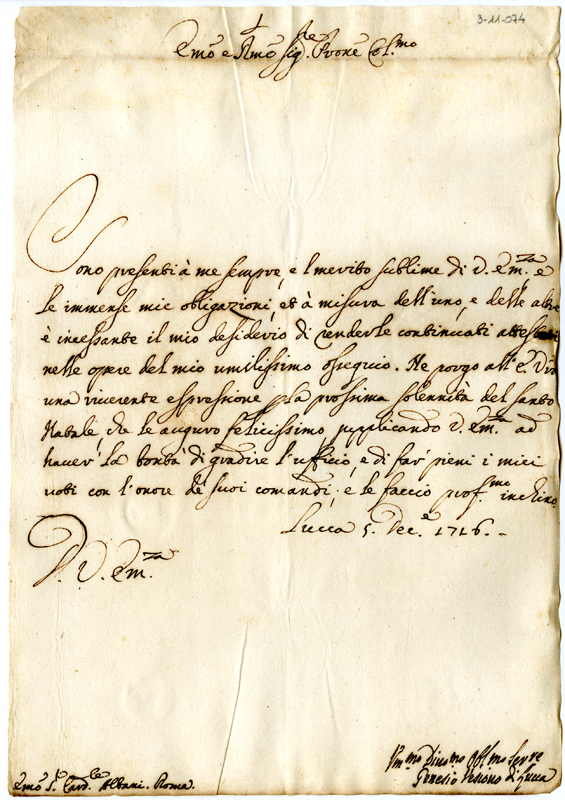 3-11-074
Em̃o e Rm̃o Sig.re Prone Col.mo
Sono presenti à me sempre, e l merito sublime di V. Em.za e
le immense mie obligazioni, et à misura dell'uno, e delle altre
è incessante il mio desiderio di renderle continuati attestati
nelle opere del mio umilissimo ossequio. Ne porgo all'E. Vra
una riverente espressione p la prossima solennità del santo
Natale, che le auguro felicissimo supplicando V. Em.za ad
haver' la bontà di gradire l'uffício, e di far' pieni i miei
voti con l'onore de suoi comandi; e le faccio prof.mo inchino
Lucca 5. Dec.e 1716.-
D. V. Em.za
Vm.mo Diuo.mo Obl.mo Serre
Genesio Vescovo di Lucca
Em̃o S.r Card.le Albani. Roma.